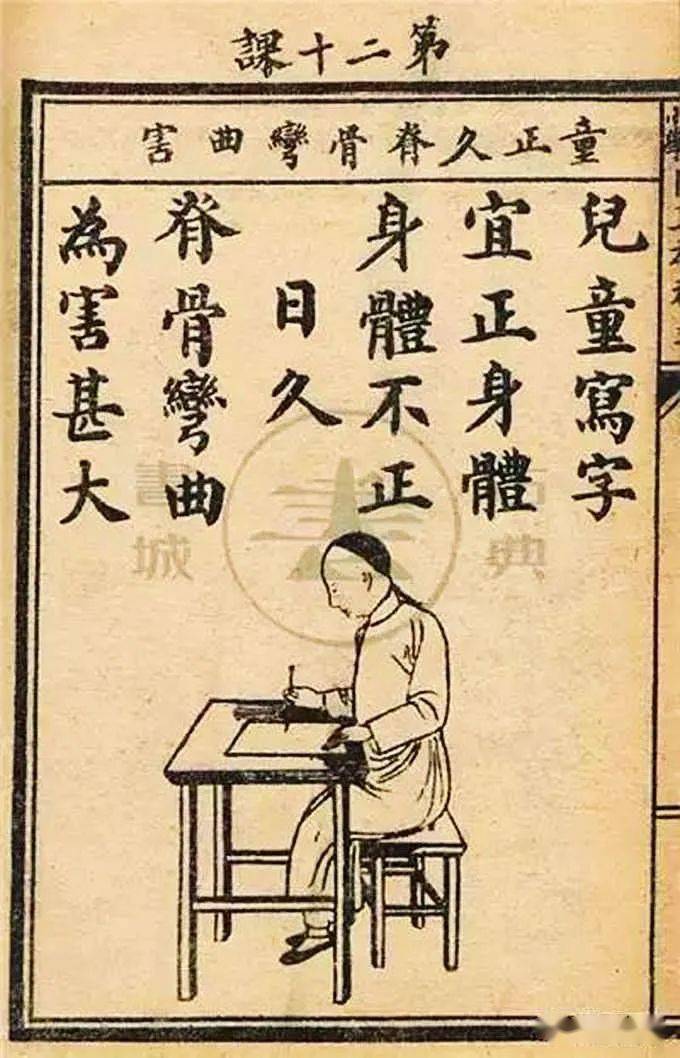 第二十課
童正久脊骨彎曲害
兒童寫字
宜正身體
身體不正
日久
脊骨彎曲
為害甚大
古典
書城